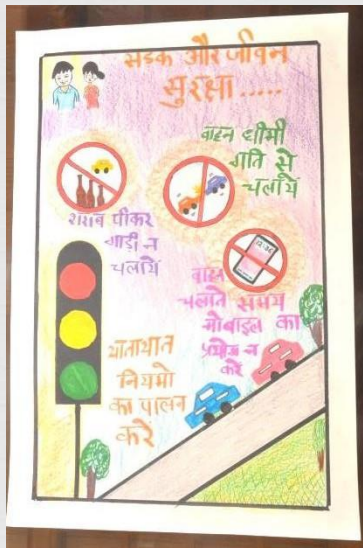 सड़क और जीवन
सुरक्षा.....
वाहन धीमी
गति से
चलायें
शराब पीकर
गाड़ी न
चलायें
वाहन
चलाते समय
मोबाइल का
प्रयोग न
करे
यातायात
नियमो
का पालन
करे